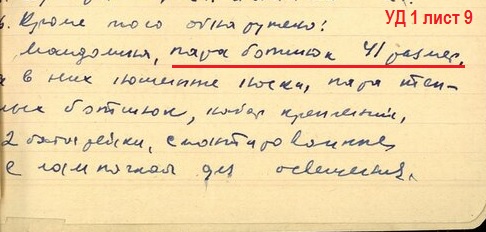 УД 1 лист 9
6. Кроме того обнаружено:
Мандолина, пара ботинок 41 размер,
а в них шерстяные носки, пара
ных ботинок, набор креплений,
2 батарейки, смонтированные
с лампочкой для освещения.